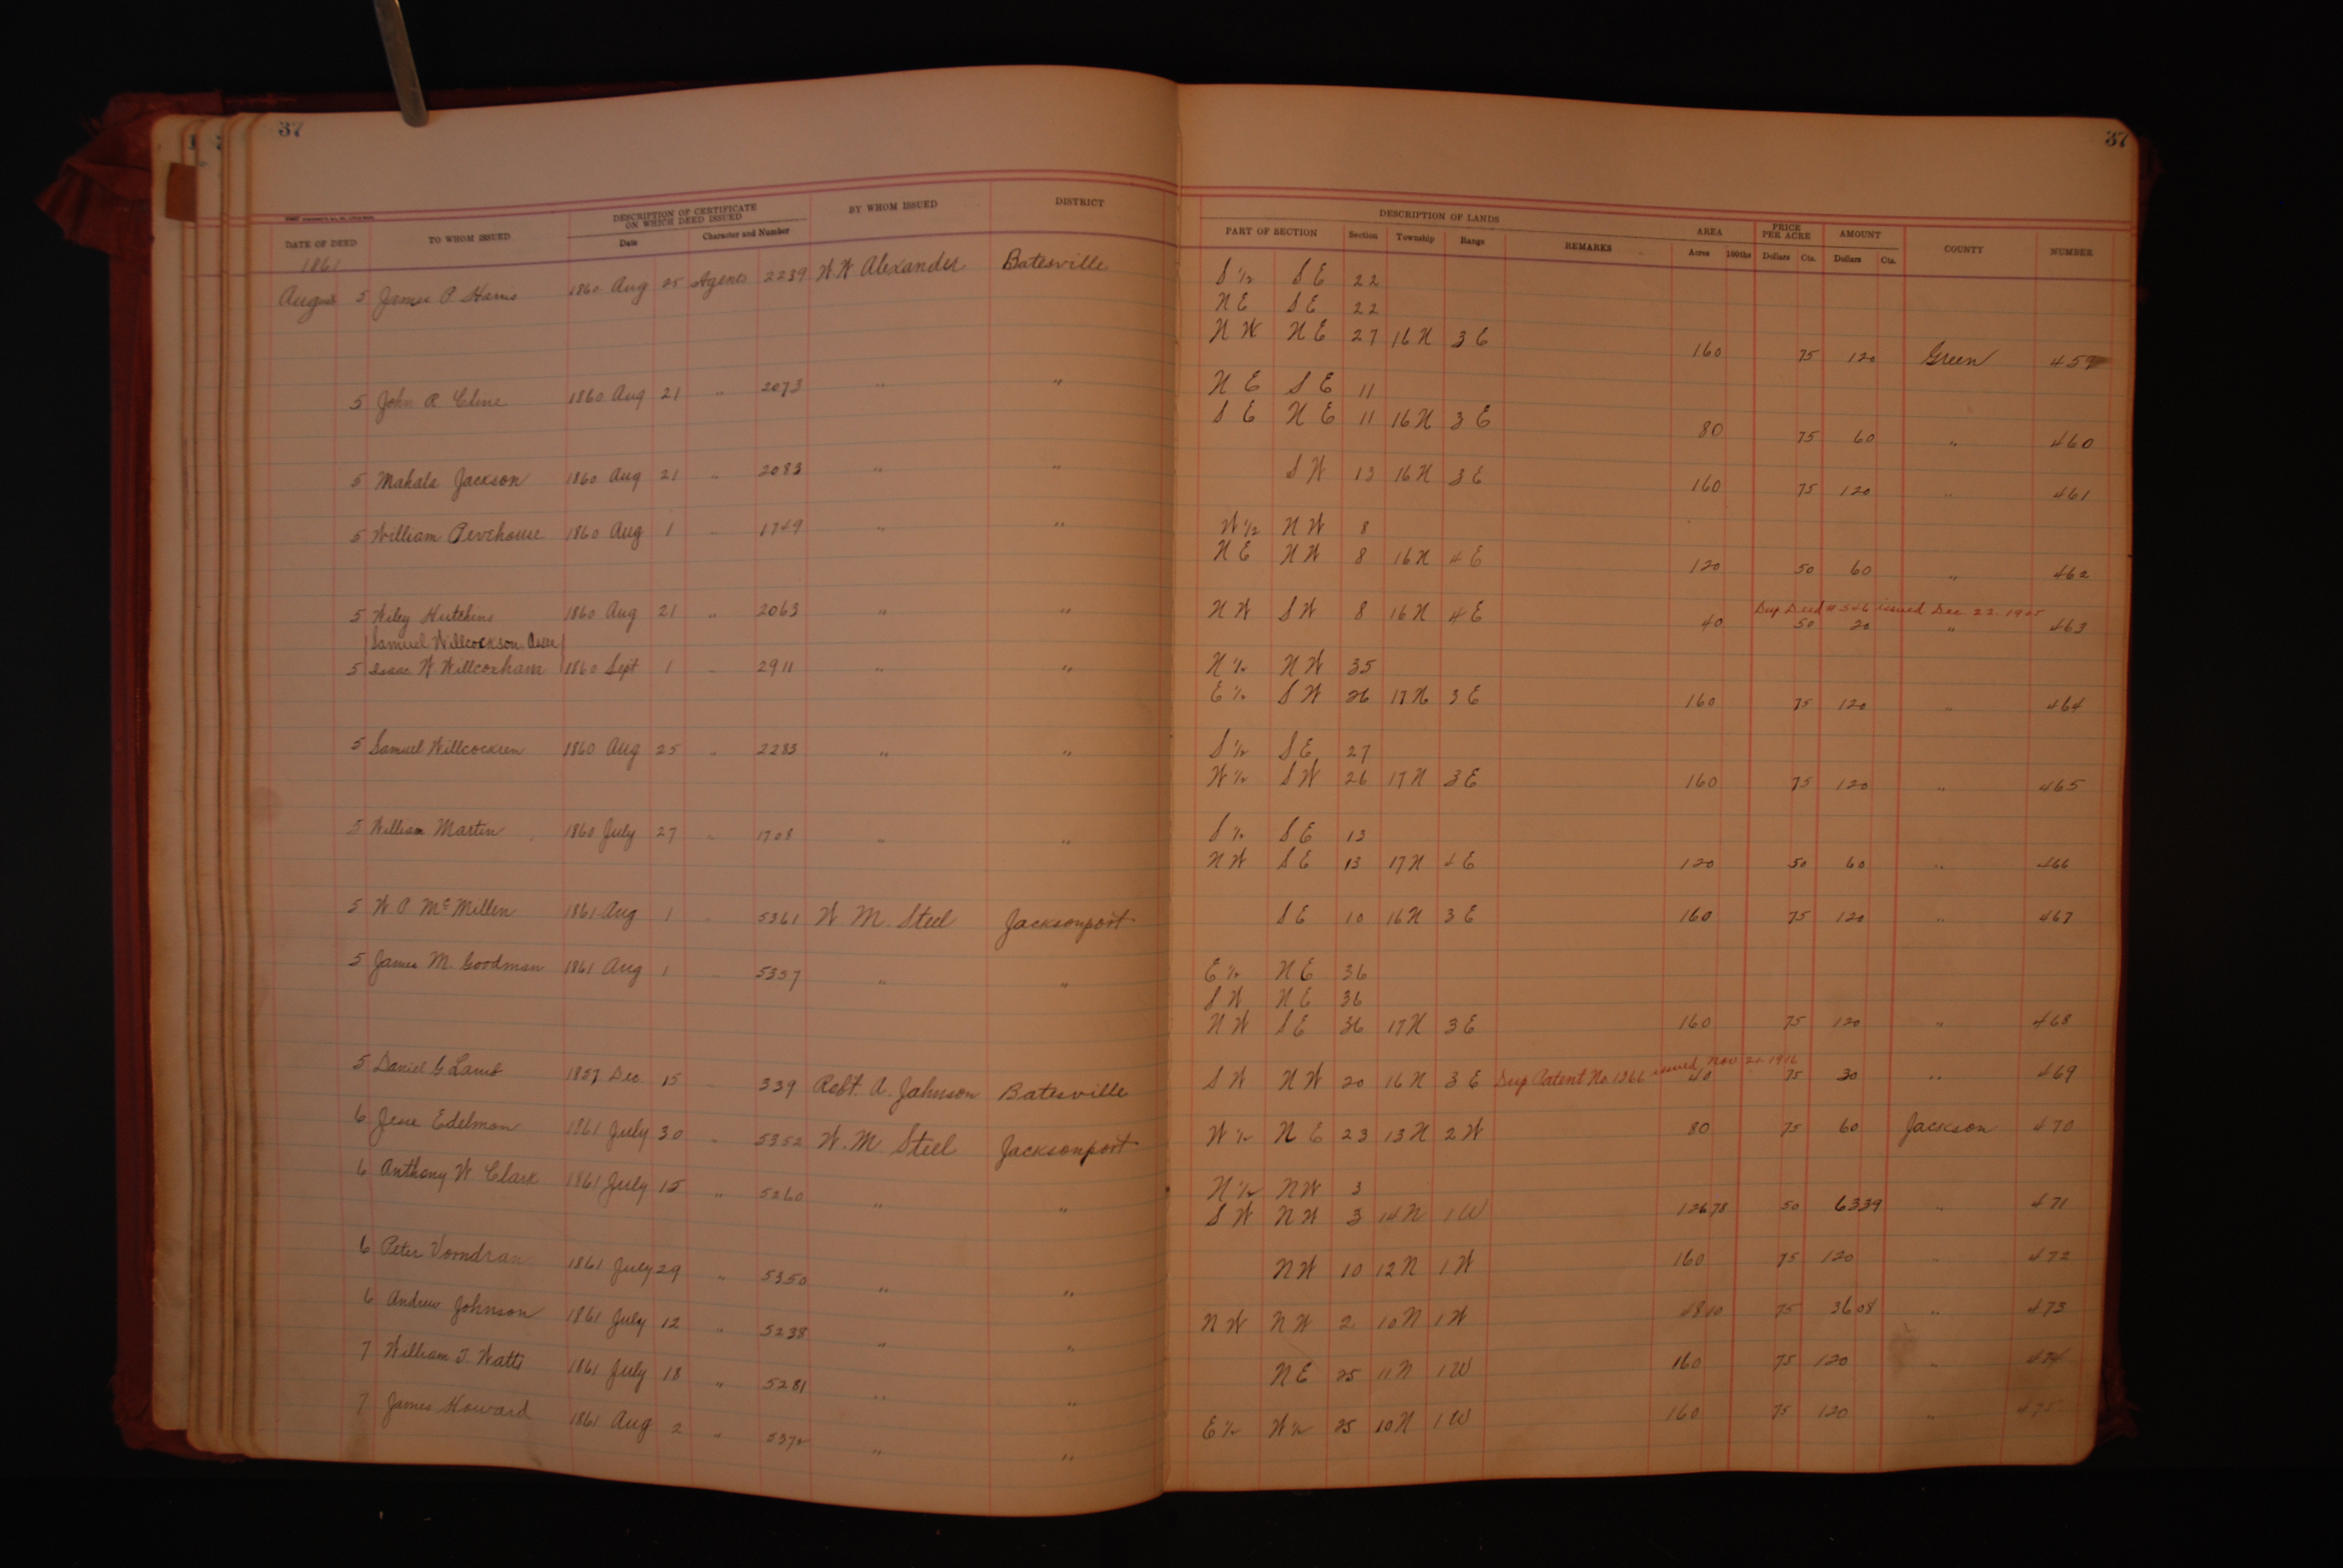 37
37
DESCRIPTION OF CERTIFICATE ON WHICH DEED ISSUED BY WHOM ISSUED DISTRICT DESCRIPTION OF LANDS AREA PRICE PER ACRE AMOUNT
DATE OF DEED TO WHOM ISSUED Date Character and Number PART OF SECTION Section Township Range REMARKS Acres 100ths Dollars Cts. Dollars Cts. COUNTY NUMBER
1861
August 5 James P Harris 1860 Aug 25 Agents 2239 W W Alexander Batesville S ½ S E 22
N E S E 22
N W N E 27 16 N 3 E 160 75 120 Green 459
5 John R Cline 1860 Aug 21 " 2073 " " N E S E 11
S E N E 11 16 N 3 E 80 75 60 " 460
5 Mahala Jackson 1860 Aug 21 " 2083 " " S W 13 16 N 3 E 160 75 120 " 461
5 William Pevehouse 1860 Aug 1 " 1749 " " W ½ N W 8
N E N W 8 16 N 4 E 120 50 60 " 462
5 Wiley Hutchins 1860 Aug 21 " 2063 " " N W S W 8 16 N 4 E 40 50 20 " 463
Dup Deed # 546 issued Dec. 22. 1905
Samuel Willcockson Assee
5 Isaac W Willcoxham 1860 Sept 1 " 2911 " " N ½ N W 35
E ½ S W 26 17 N 3 E 160 75 120 " 464
5 Samuel Willcockson 1860 Aug 25 " 2283 " " S ½ S E 27
W ½ S W 26 17 N 3 E 160 75 120 " 465
5 William Martin 1860 July 27 " 1708 " " S ½ S E 13
N W S E 13 17 N 4 E 120 50 60 " 466
5 W P McMillen 1861 Aug 1 " 5361 W M. Steel Jacksonport S E 10 16 N 3 E 160 75 120 " 467
5 James M. Goodman 1861 Aug 1 " 5357 " " E ½ N E 36
S W N E 36
N W S E 36 17 N 3 E 160 75 120 " 468
5 Daniel G Lamb 1857 Dec. 15 " 339 Robt. A. Johnson Batesville S W N W 20 16 N 3 E Dup Patent No 1366 issued Nov 1916 40 75 30 " 469
6 Jesse Edelman 1861 July 30 " 5352 W. M. Steel Jacksonport W ½ N E 23 13 N 2 W 80 75 60 Jackson 470
6 Anthony W Clark 1861 July 15 " 5260 " " N ½ N W 3
S W N W 3 14 N 1 W 126 78 50 63 39 " 471
6 Peter Vorndran 1861 July 29 " 5350 " " N W 10 12 N 1 W 160 75 120 " 472
6 Andrew Johnson 1861 July 12 " 5238 " " N W N W 2 10 N 1 W 48 10 75 36 08 " 473
7 William T. Watts 1861 July 18 " 5281 " " N E 25 11 N 1 W 160 75 120 " 474
7 James Howard 1861 Aug 2 " 5372 " " E ½ W ½ 25 10 N 1 W 160 75 120 " 475